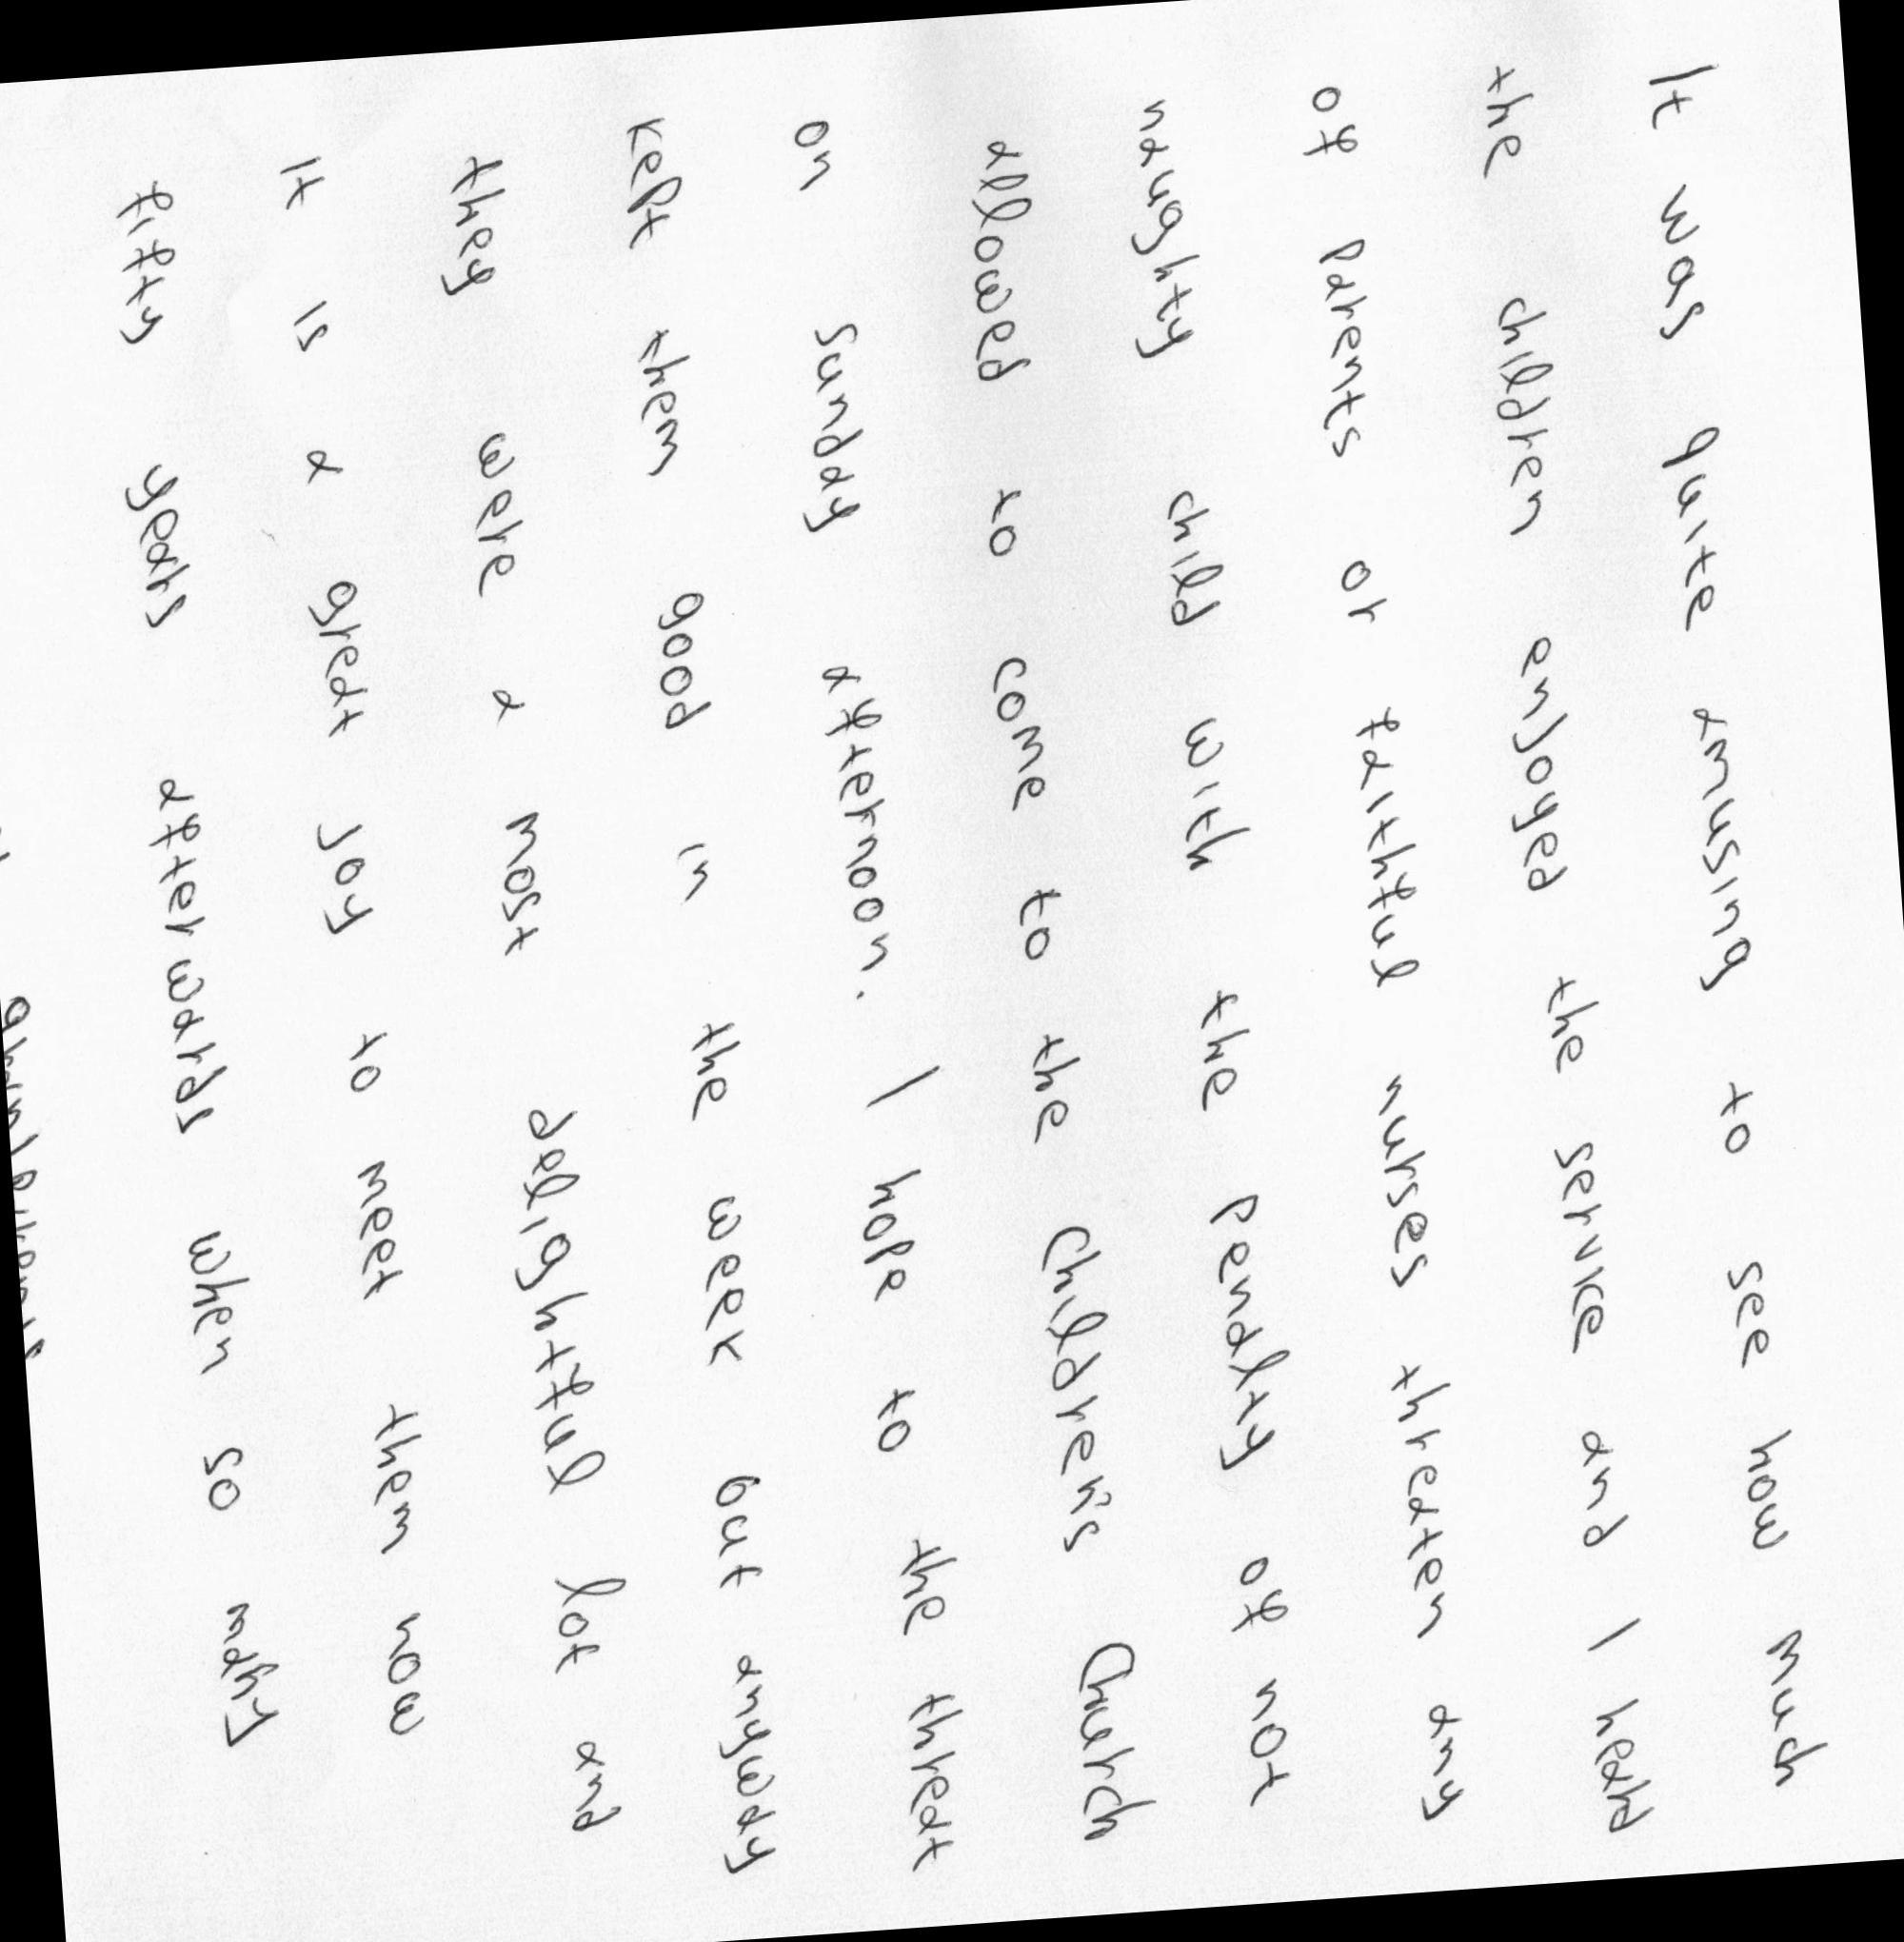 It was quite amusing to see how much
the children enjoyed the service and I heard
of parents or faithful nurses threaten any
naughty child with the penalty of not
allowed to come to the Children's Church
on Sunday afternoon. I hope to the threat
kept them good in the week but anyway
they were a most delightful lot and
it is a great joy to meet them now
fifty years afterwards when so many